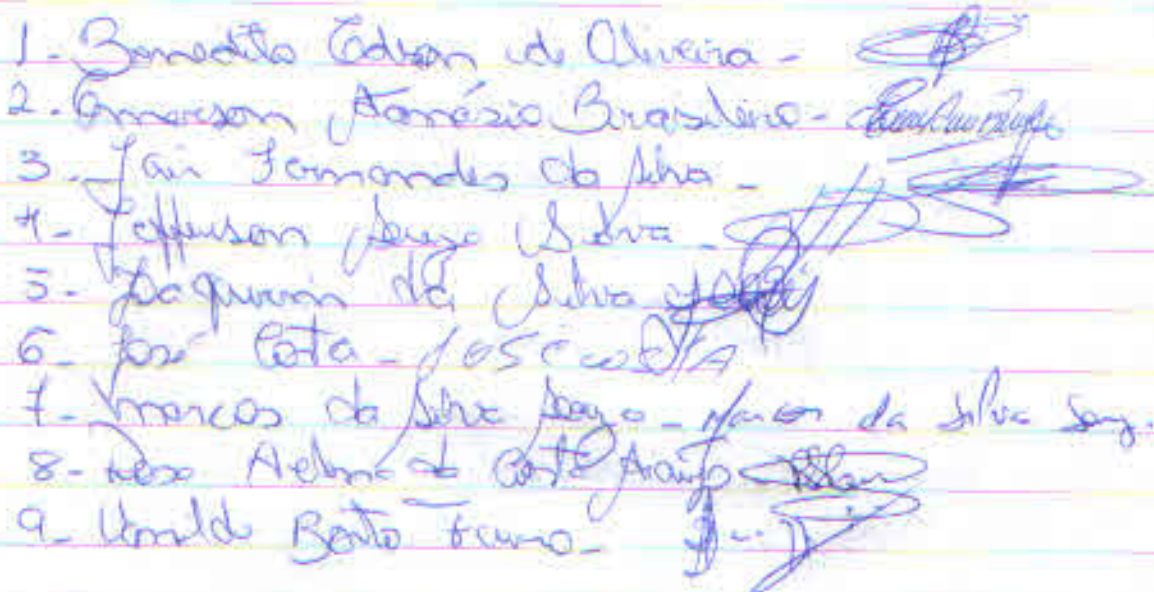 1- Benedito Edson de Oliveira -
2- Emerson Atanásio Brasileiro -
3- Jair Fernandes da Silva -
4- Jefferson Souza Silva -
5- Joaquim da Silva
6- José Costa - JOSE COSTA
7- Marcos da Silva Souza - Marcos da Silva Souz.
8- da Costa Araujo
9- Bento